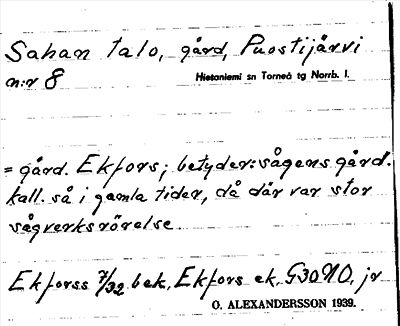 Sahan talo, gård, Puostijärvi
n:r 8 Hietaniemi sn Torneå tg Norrb. l.
= gård. Ekfors; betyder: sågens gård.
kall. så i gamla tider, då där var stor
sågverksrörelse.
Ekforss 7/32 bek. Ekfors ek. G30NO, jr
O. ALEXANDERSSON 1939.